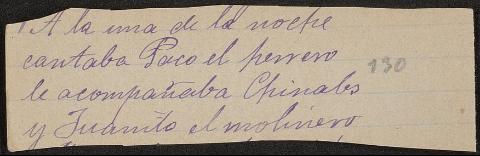 A la una de la noche
cantaba Paco el perrero
130
le acompañaba Chinales
y Juanito el molinero